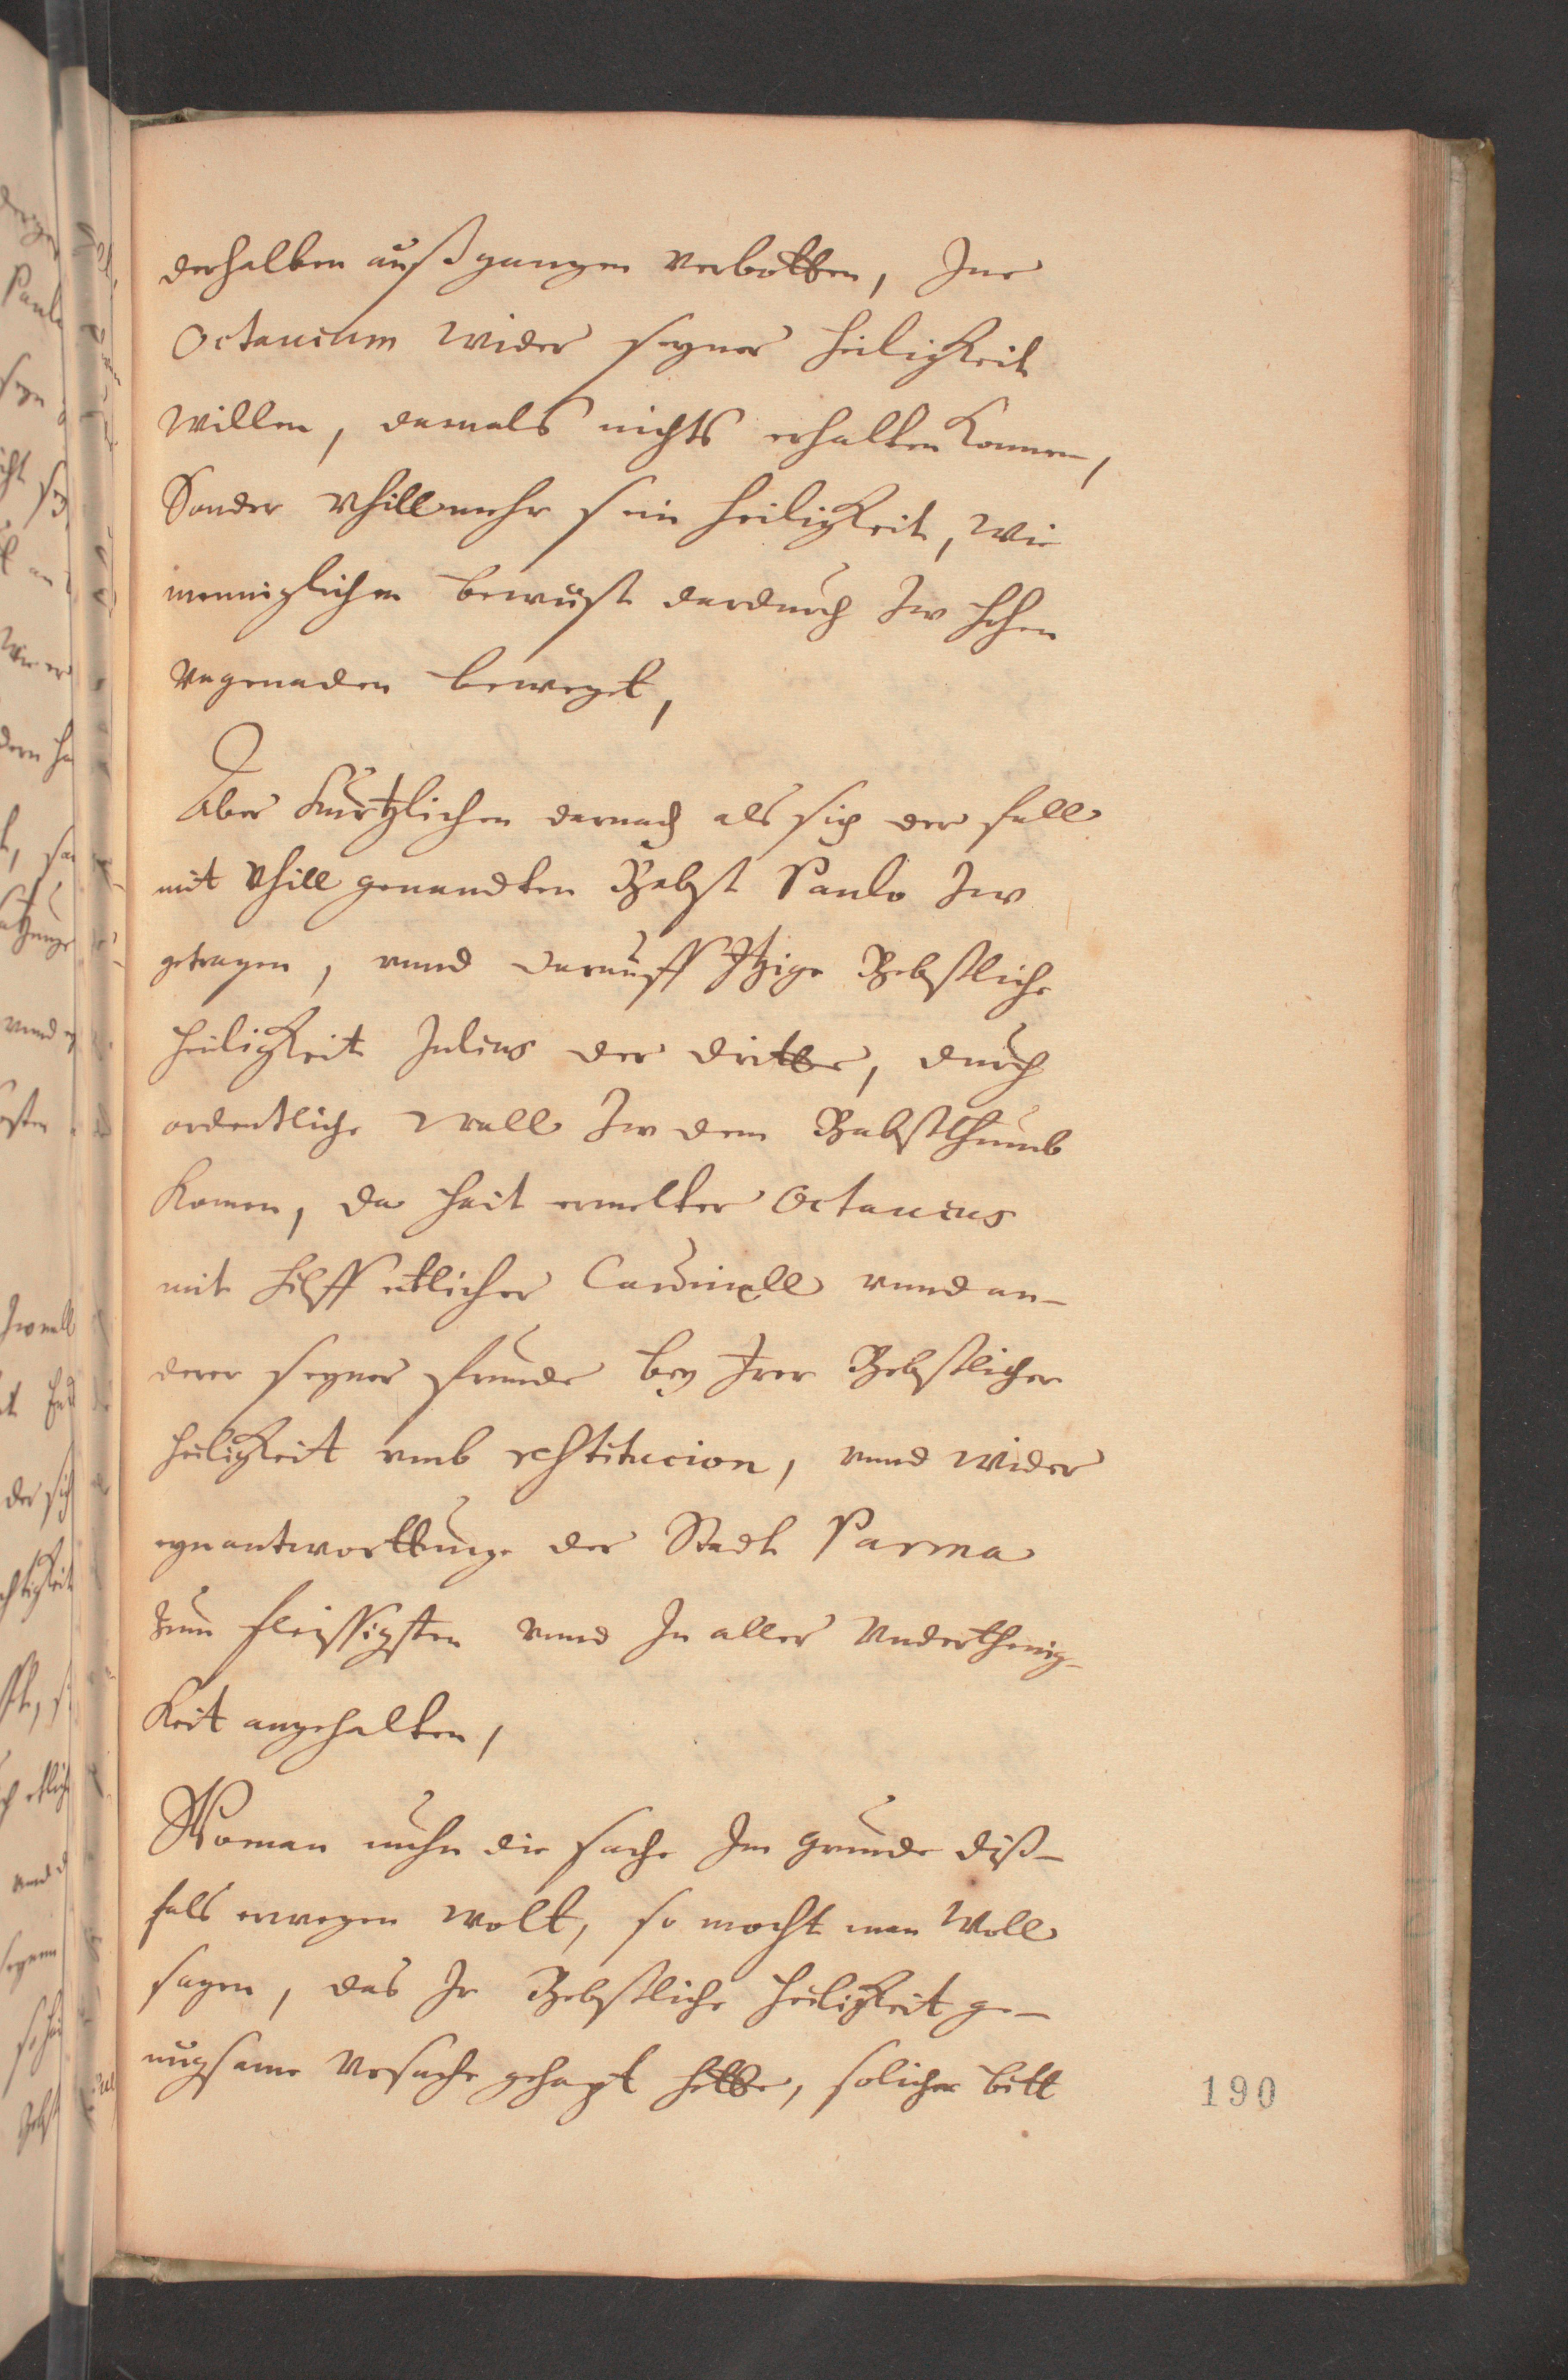 derhalben außgangen verbotten, Ine
Octauium wider seyner heiligkeit
willen, damals nichts erhalten konnen,
Sonder vhillmehr sein heiligkeit, wie
menniglichen bewust dardurch Zw hohen
vngenaden beweget,
Aber kurtzlichen darnach als sich der fall
mit vhill genandten Babst Paulo Zw
getragen, vnnd darauff Itzige Bebstliche
heiligkeit Julius der dritte, durch
ordentliche wall Zw dem Babsthumb
komen, da hait ermelter Octauius
mit hilff etlicher Cardinell vnnd an-
derer seyner freunde bey Irer Bebstlichen
heiligkeit vmb restitucion, vnnd wider
eynantworttunge der Stadt Parma
zum fleissigsten vnnd In aller vnderthenig-
keit angehalten,
Wo man nuhn die sache Im grunde diß-
fals erwegen wolt, so mocht man woll
sagen, das Ir Bebstliche heiligkeit ge-
nugsame vrsache gehapt hette, solicher bitt
190